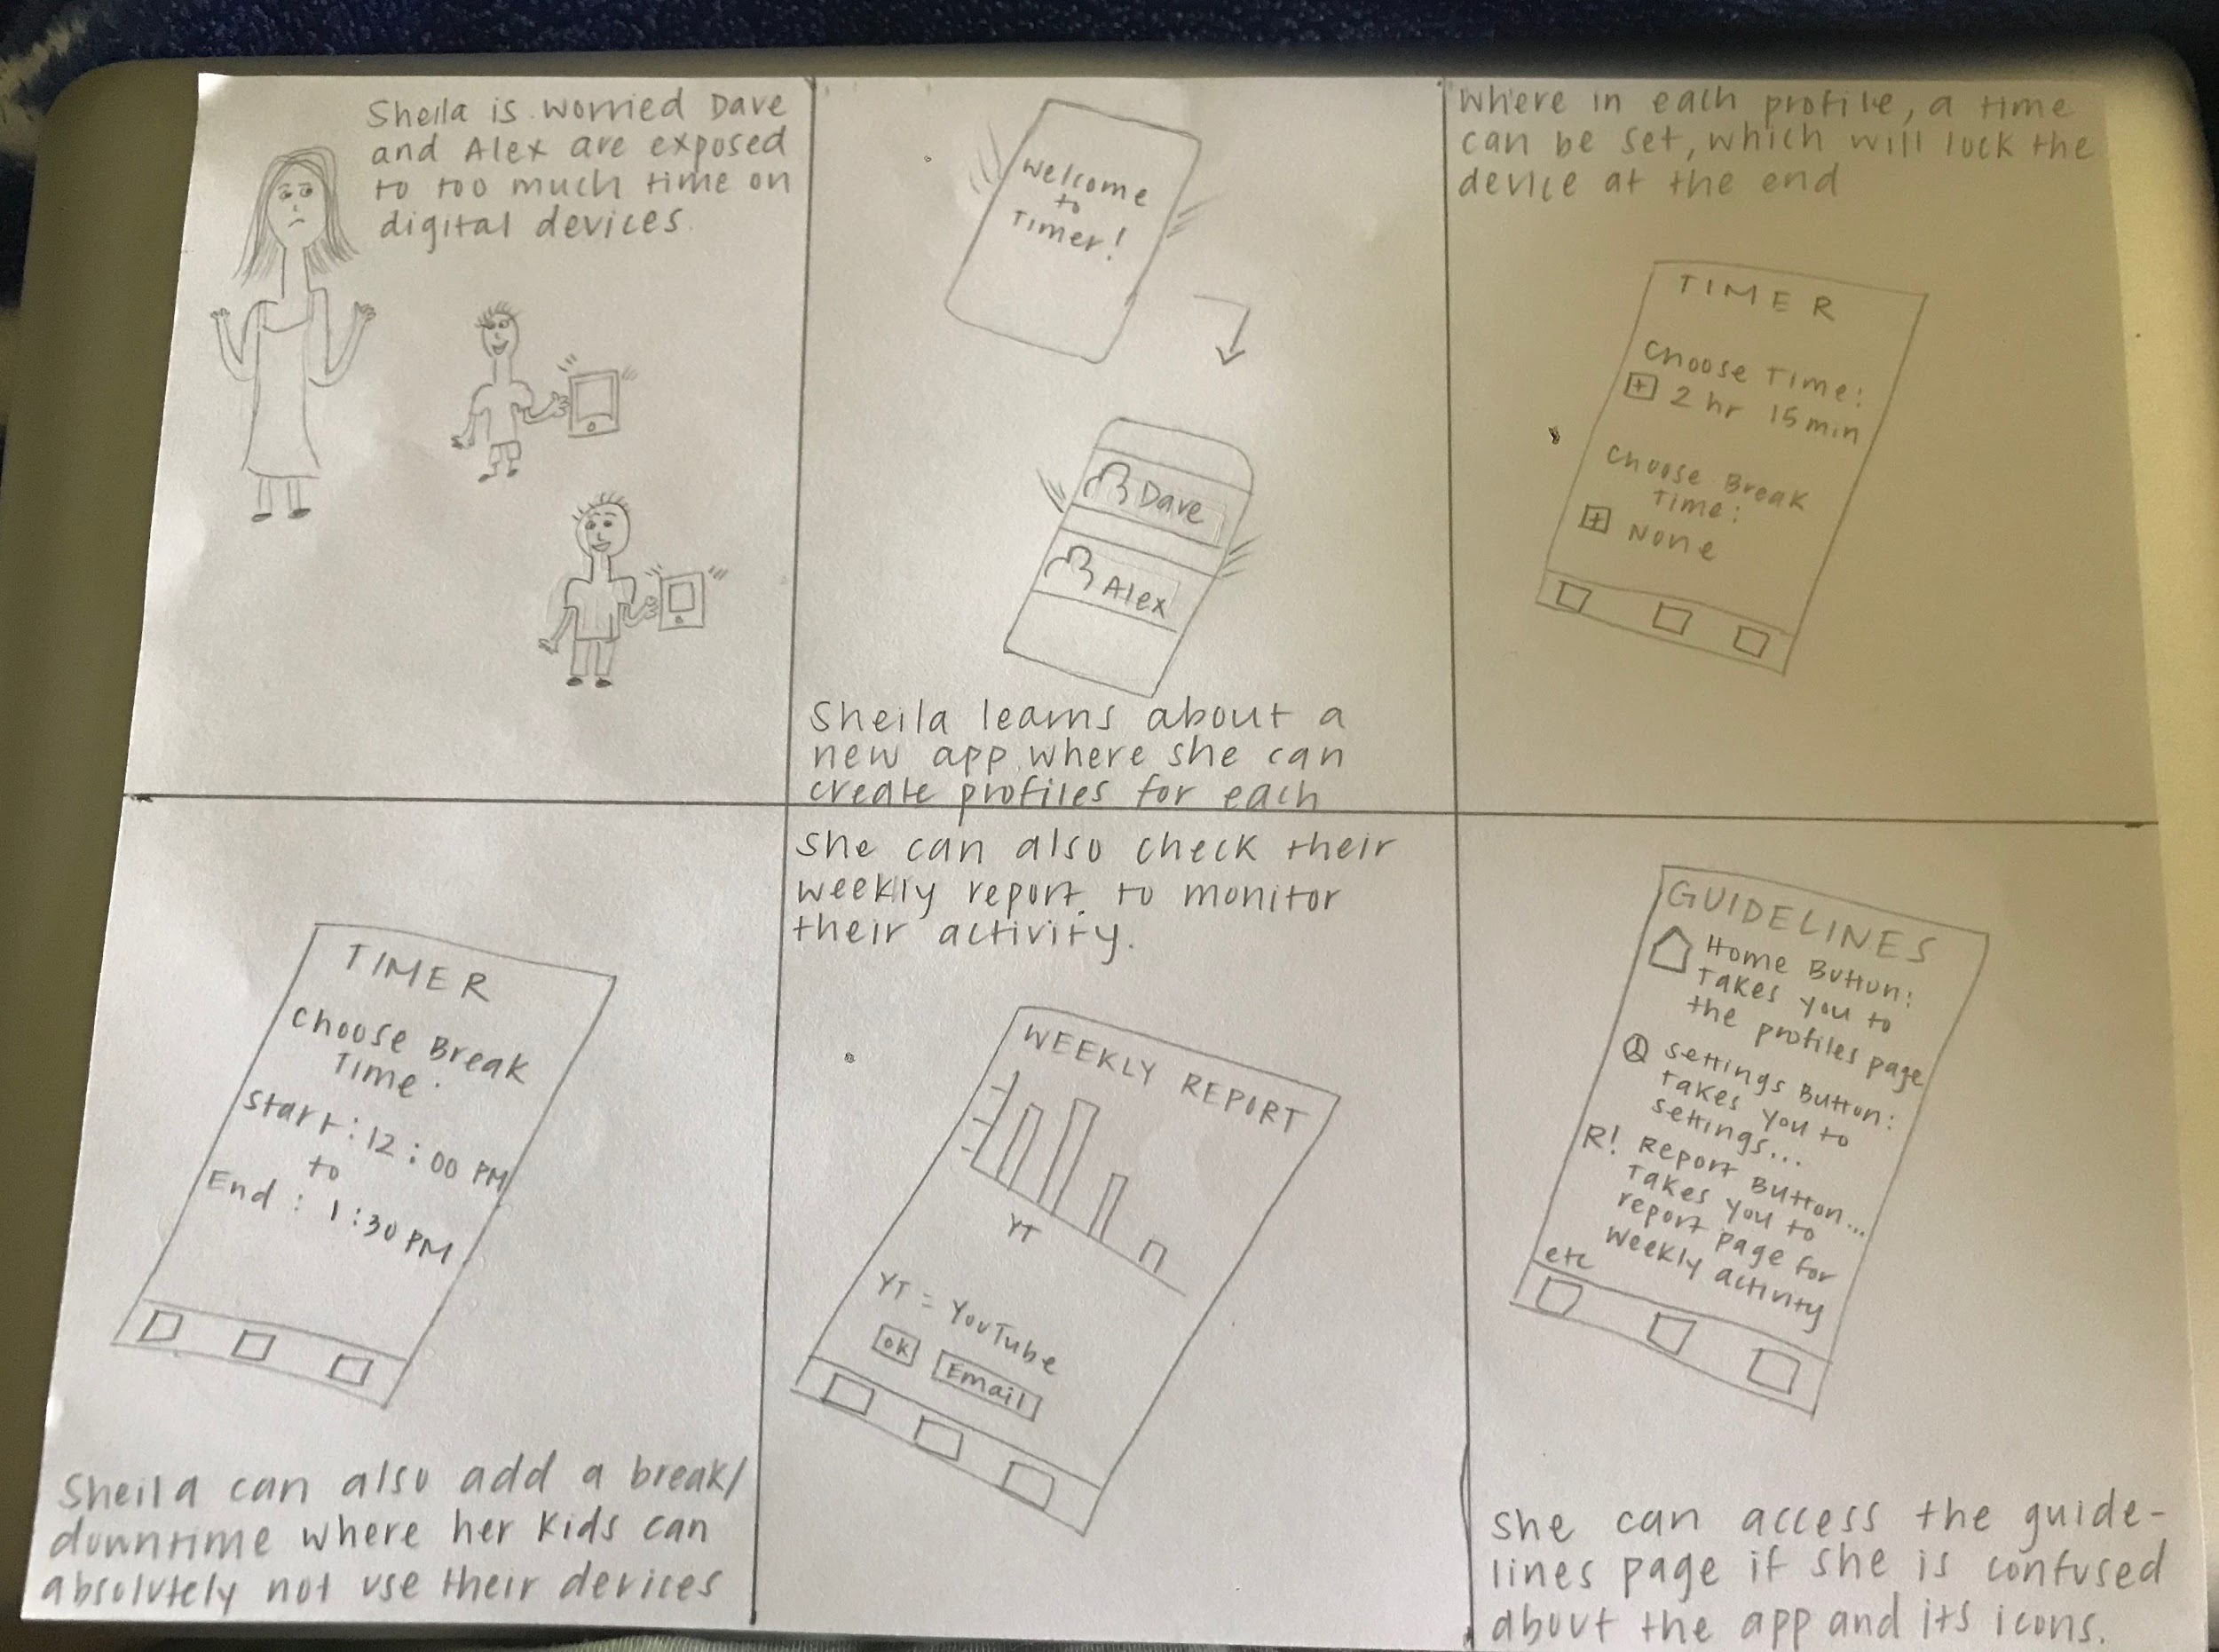 Sheila is worried Dave
and Alex are exposed
to too much time on
digital devices.
Welcome
to
Timer!
Dave
Alex
Sheila learns about a
new app where she can
create profiles for each
Where in each profile, a time
can be set, which will lock the
device at the end
TIMER
Choose Time:
+ 2 hr 15 min
Choose Break
Time:
+ None
TIMER
Choose Break
Time:
Start: 12:00 PM
to
End: 1:30 PM
Sheila can also add a break/
downtime where her kids can
absolutely not use their devices
She can also check their
weekly report to monitor
their activity.
WEEKLY REPORT
YT
YT = YouTube
OK Email
GUIDELINES
Home Button:
Takes you to
the profiles page
Settings Button:
Takes you to
settings...
R! Report Button...
Takes you to
report page for
weekly activity
etc
She can access the guide-
lines page if she is confused
about the app and its icons.